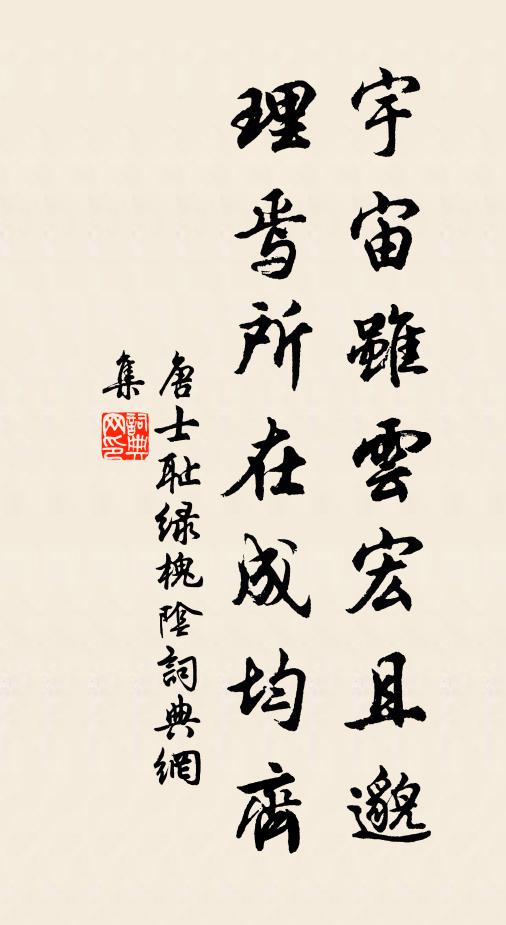 宇宙雖雲宏且邈
理焉所在成均齊
唐士耻綠槐陰詞典網
集
詞典
网印